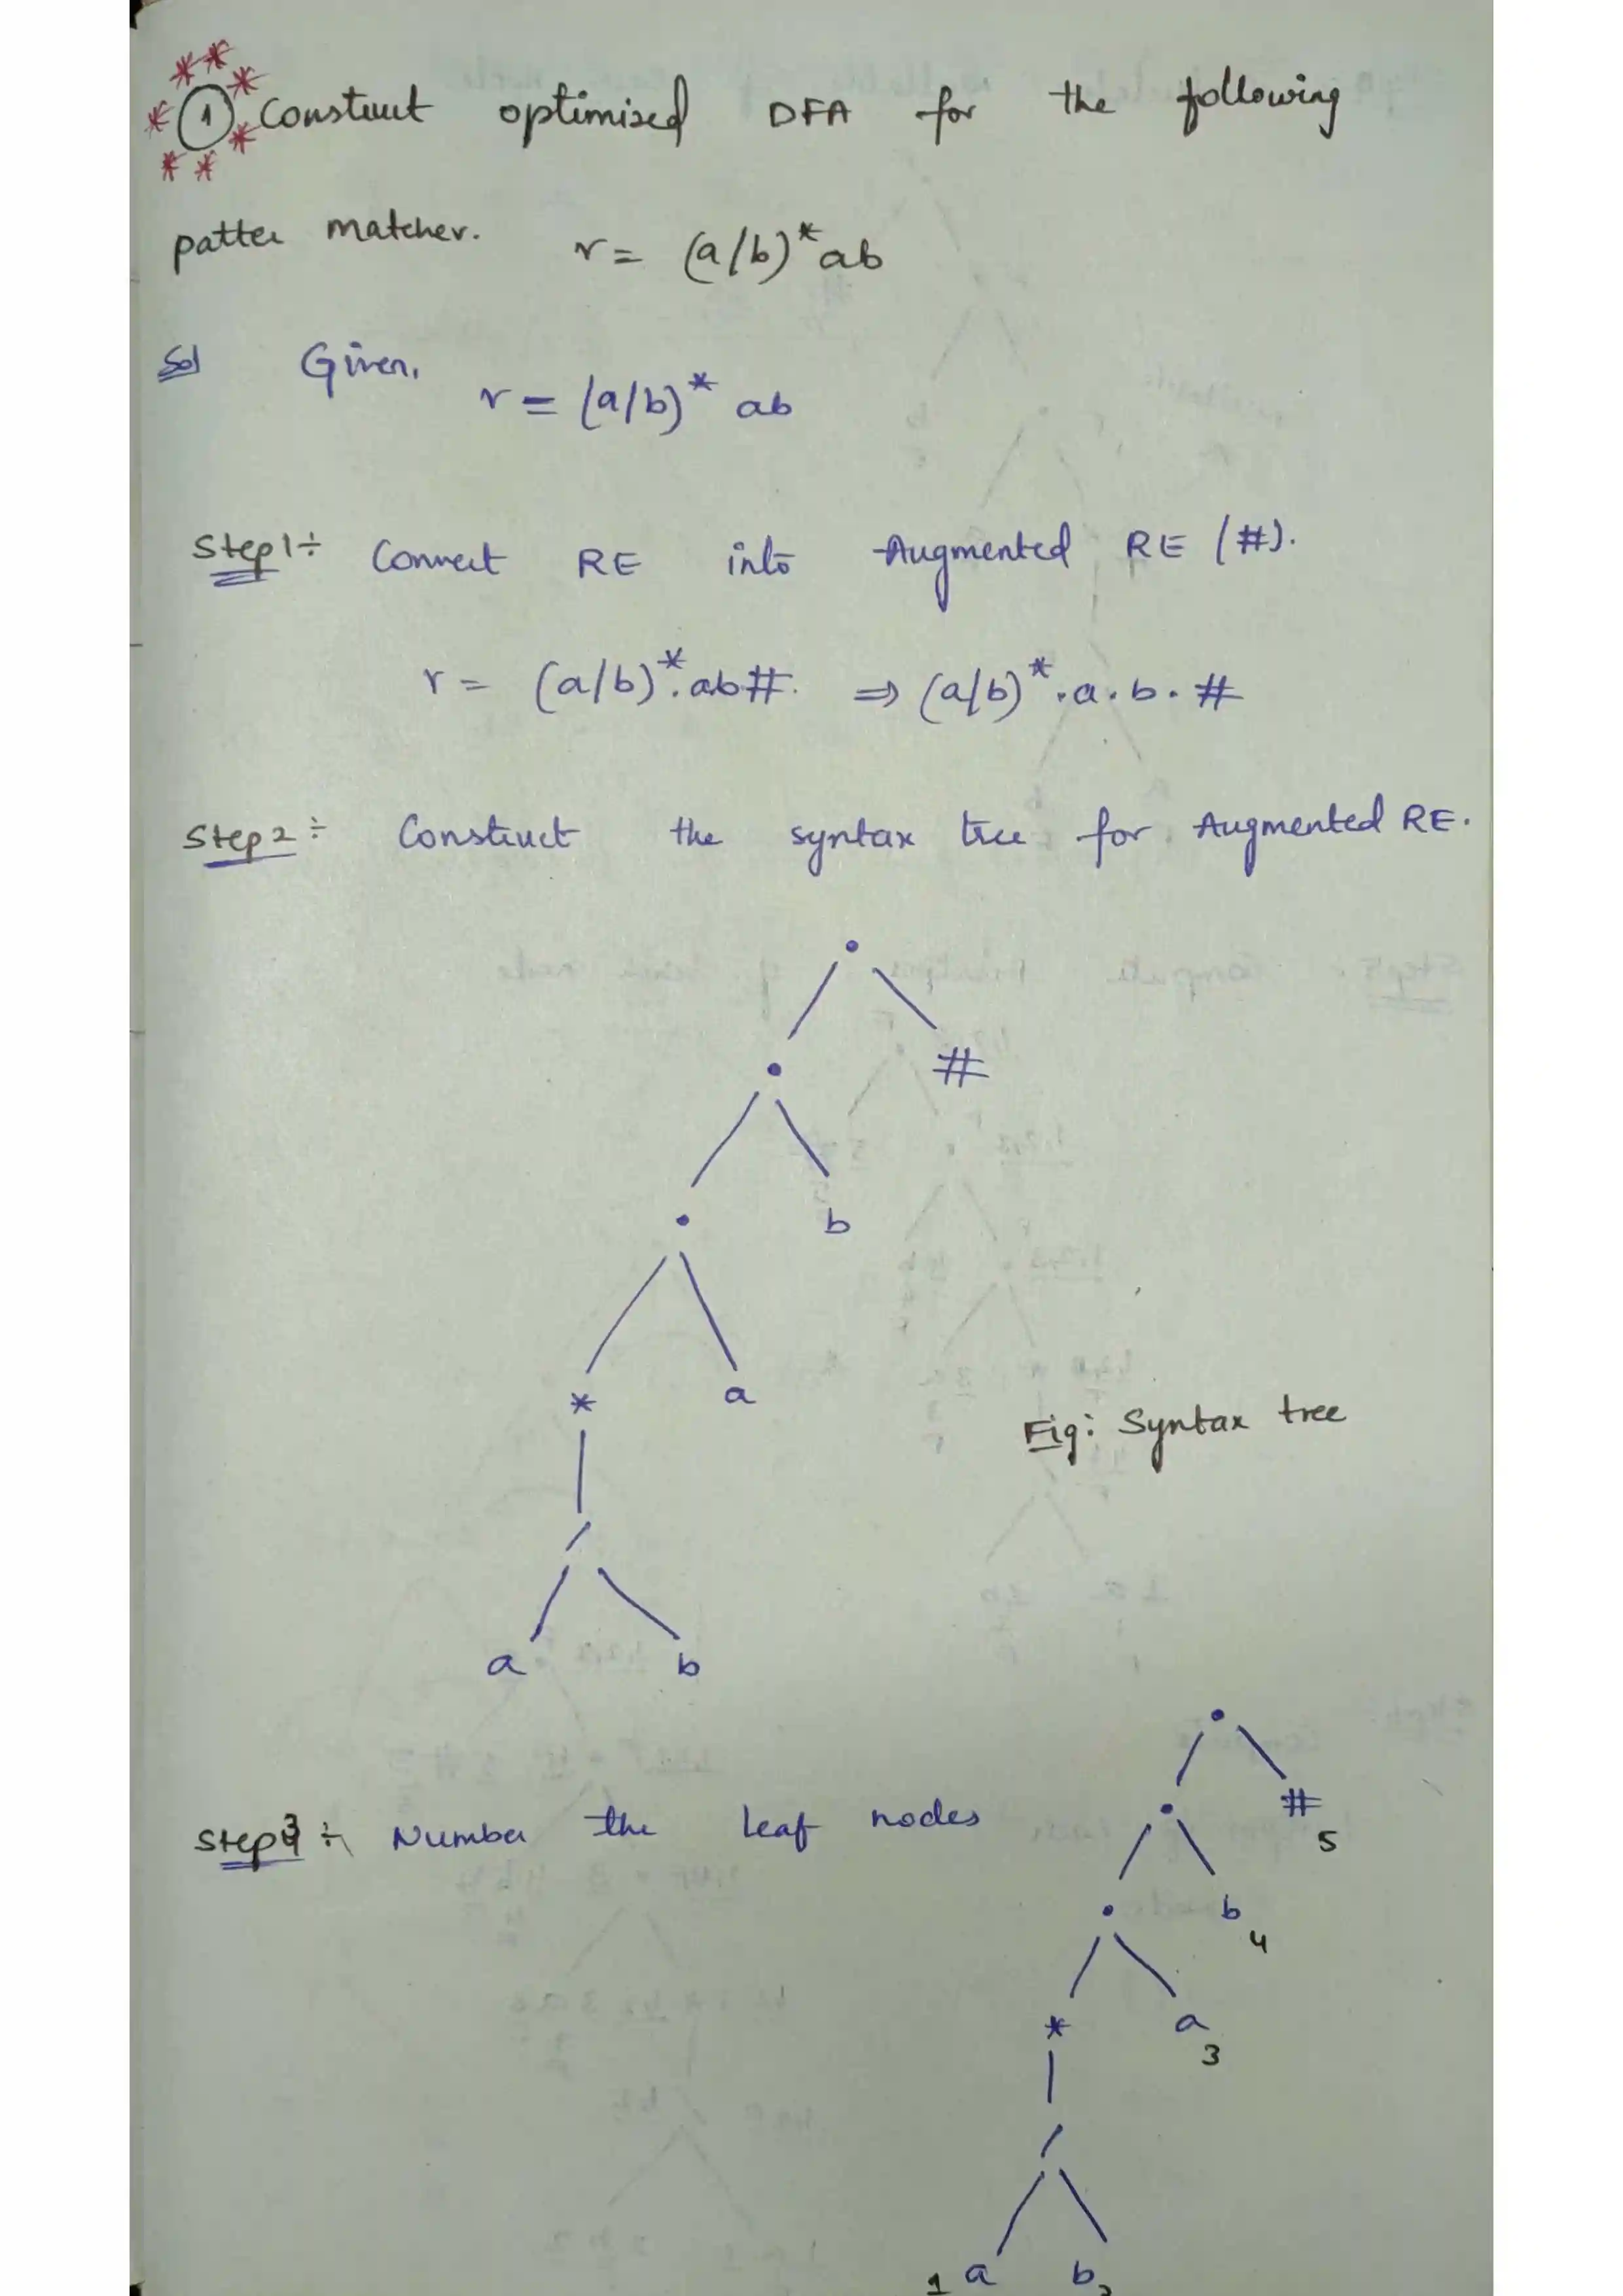 1 Construct optimised DFA for the following
patter matcher. r = (a/b)* ab
Sol Given, r = (a/b)* ab
Step 1 ÷ Convert RE into Augmented RE (#).
r = (a/b)*.ab#. ⇒ (a/b)*.a.b.#
Step 2 ÷ Construct the syntax tree for Augmented RE.
.
. #
. b
* a
/
a b
Fig: Syntax tree
Step 3 ÷ Number the leaf nodes
.
. # 5
. b 4
* a 3
/
1 a b 2